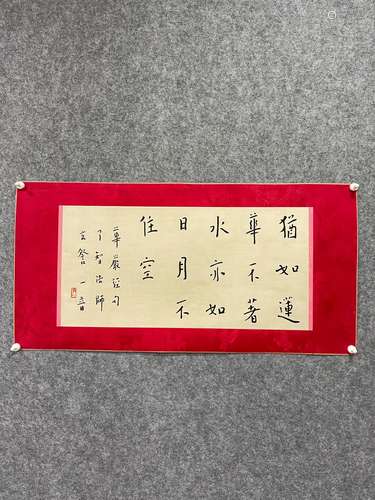 猶如蓮
華不著
水亦如
日月不
住空
華嚴經句
了智法師
詧 一音